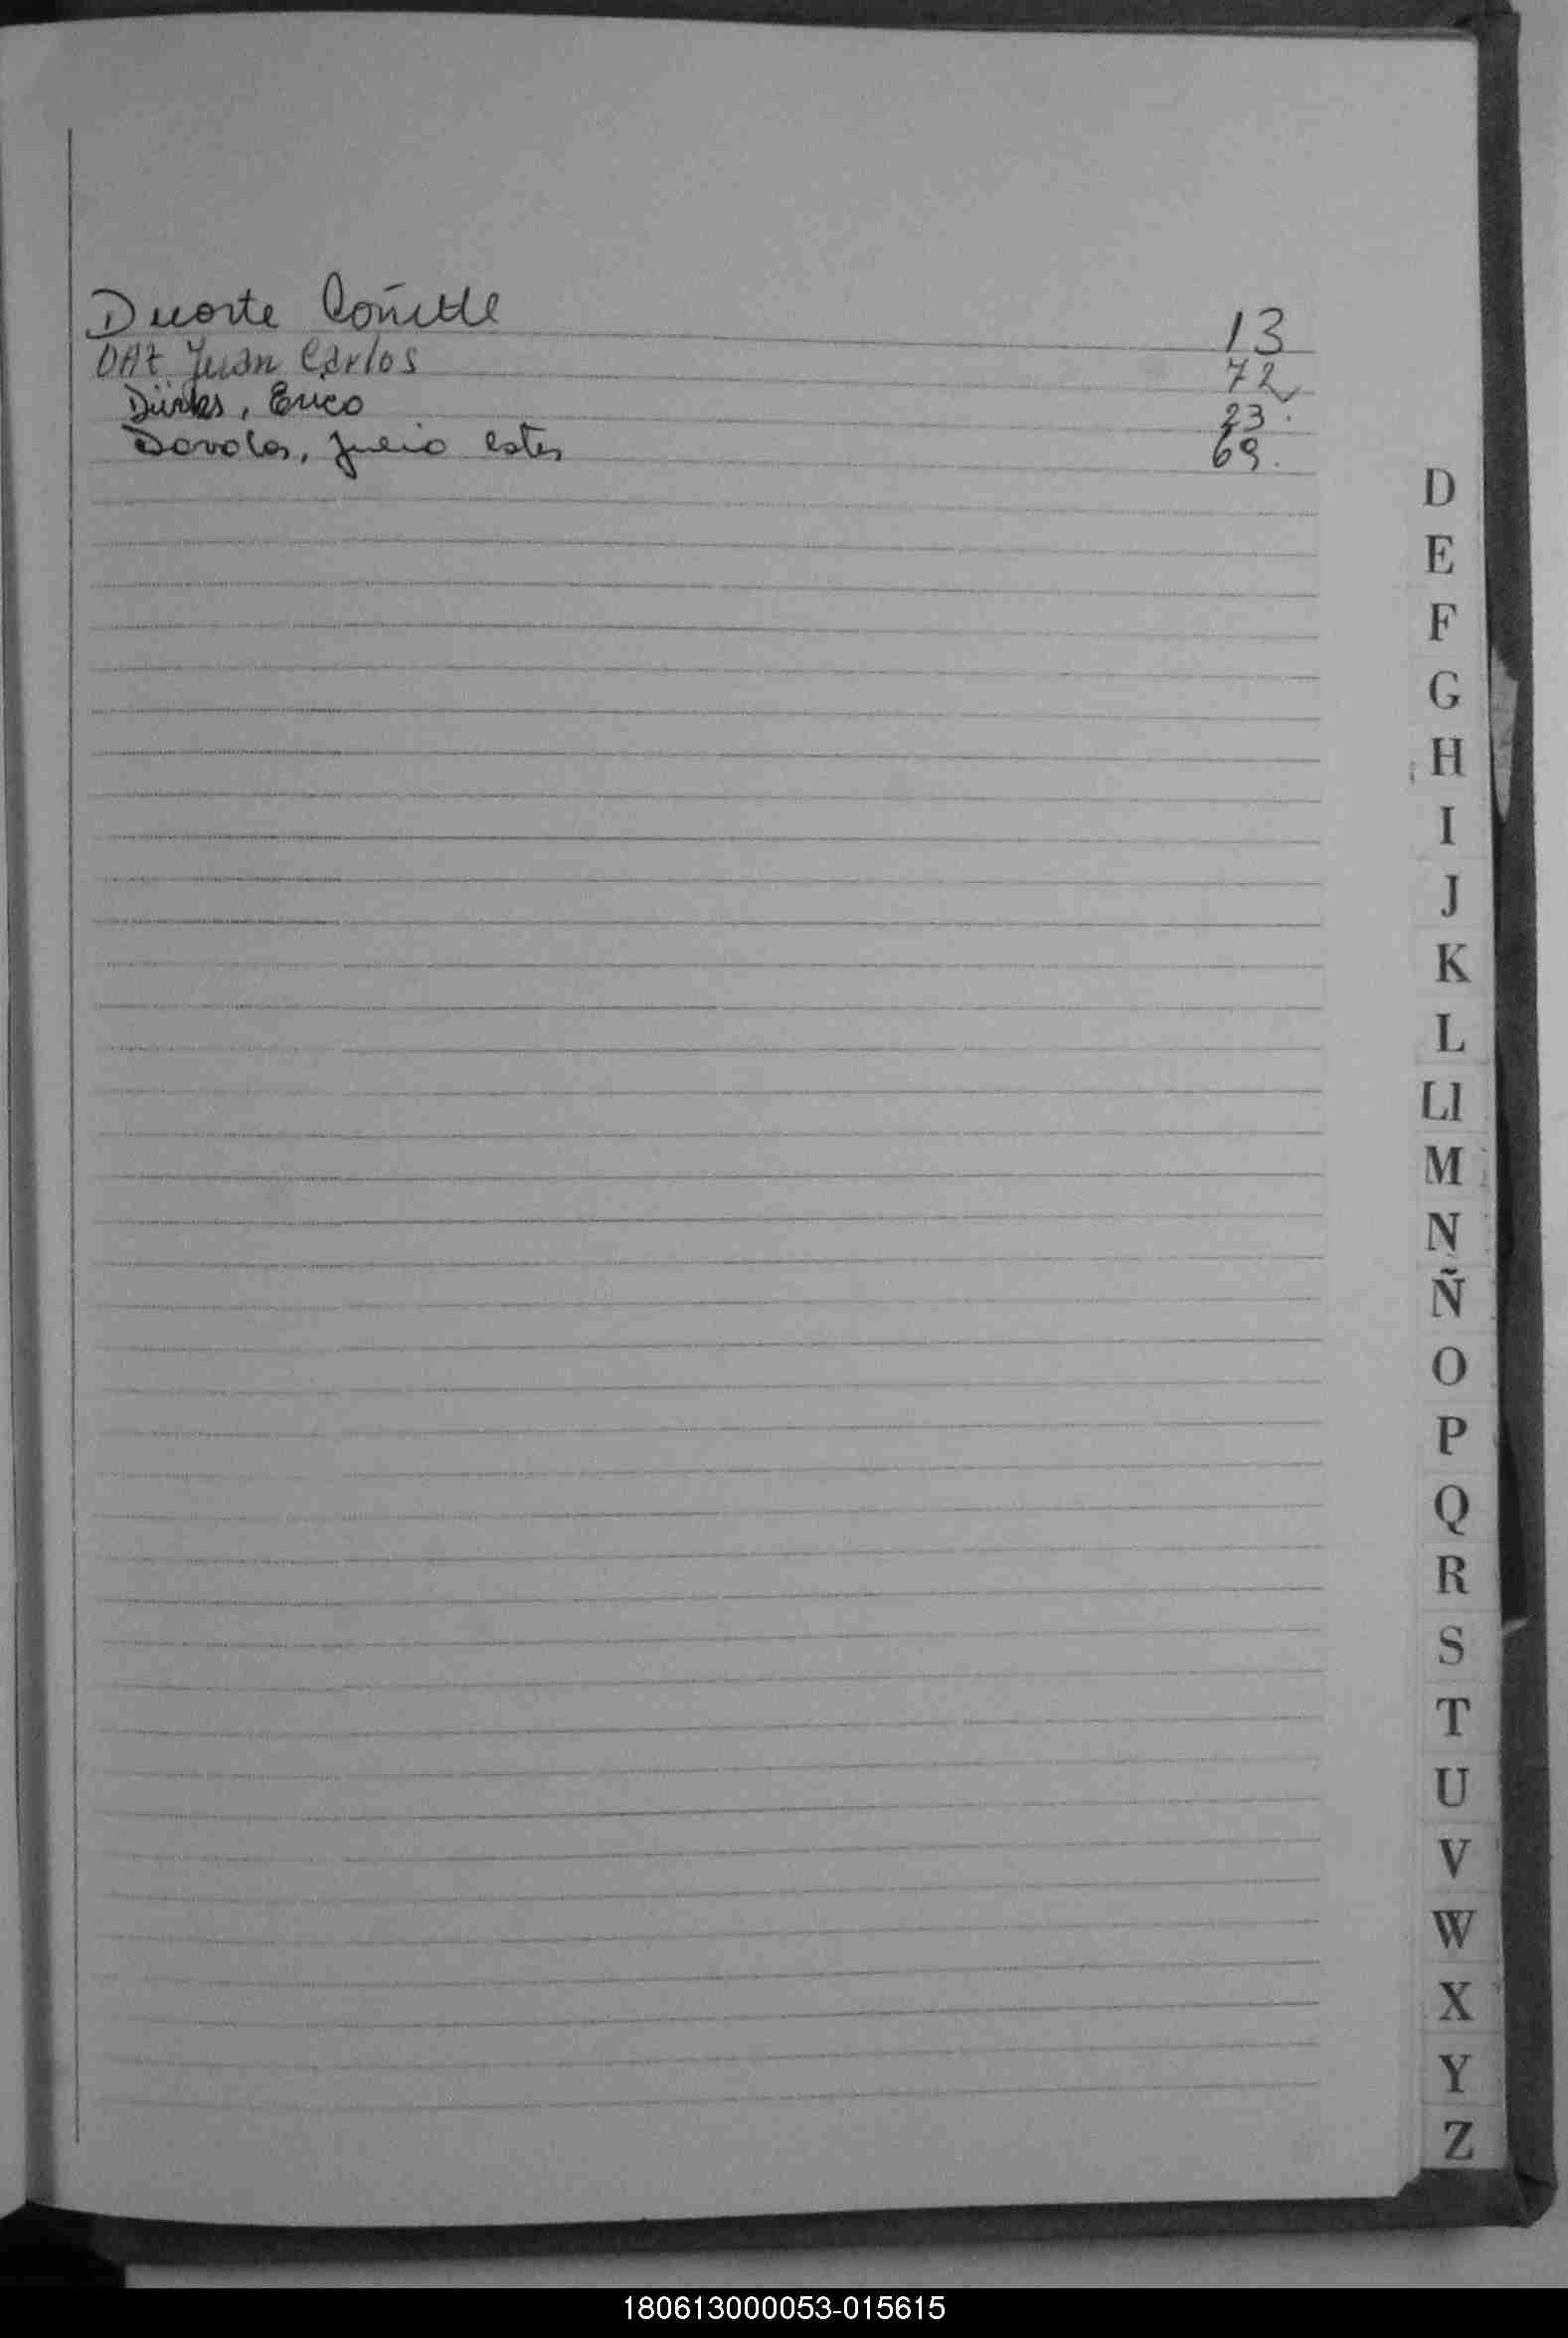 Duarte Cañete 13
DAZ Juan Carlos 72
Dürks, Erico 23.
Davalos, Julio ester 69.
D
E
F
G
H
I
J
K
L
Ll
M
N
Ñ
O
P
Q
R
S
T
U
V
W
X
Y
Z
180613000053-015615